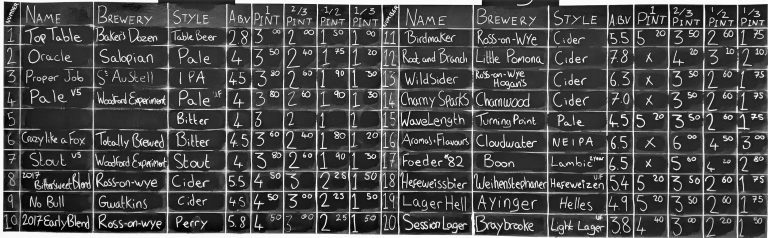 NUMBER NAME BREWERY STYLE ABV 1 PINT 2/3 PINT 1/2 PINT 1/3 PINT
1 Top Table Baker's Dozen Table Beer 2.8 3 00 2 00 1 50 1 00
2 Oracle Salopian Pale 4 3 50 2 40 1 75 1 20
3 Proper Job St Austell IPA 4.5 3 80 2 60 1 90 1 30
4 Pale V5 Woodford Experiment Pale UF 4 3 80 2 60 1 90 1 30
5 Bitter 4 3 2 1 1
6 Crazy like a Fox Totally Brewed Bitter 4.5 3 60 2 40 1 80 1 20
7 Stout V5 Woodford Experiment Stout 4 3 80 2 60 1 90 1 30
8 2017 Bittersweet Blend Ross-on-wye Cider 5.5 4 50 3 00 2 25 1 50
9 No Bull Gwatkins Cider 4.5 4 50 3 00 2 25 1 50
10 2017 Early Blend Ross-on-wye Perry 5.8 4 50 3 00 2 25 1 50
NUMBER NAME BREWERY STYLE ABV 1 PINT 2/3 PINT 1/2 PINT 1/3 PINT
11 Birdmaker Ross-on-Wye Cider 5.5 5 20 3 50 2 60 1 75
12 Root and Branch Little Pomona Cider 7.8 x 4 20 3 10 2 10
13 WildSider Ross-on-Wye Hogan's Cider 6.3 x 3 50 2 60 1 75
14 Charny Sparks Charnwood Cider 7.0 x 3 50 2 60 1 75
15 WaveLength Turning Point Pale 4.5 5 20 3 50 2 60 1 75
16 Aromas+Flavours Cloudwater NEIPA 6.5 x 6 00 4 50 3 00
17 Foeder #82 Boon Lambic 6.5 x 5 60 4 20 2 80
18 Hefeweissbier Weihenstephaner Hefeweizen UF 5.4 5 20 3 50 2 60 1 75
19 Lager Hell Ayinger Helles 4.9 5 20 3 50 2 60 1 75
20 Session Lager Braybrooke Light Lager UF 3.8 4 40 3 00 2 20 1 50